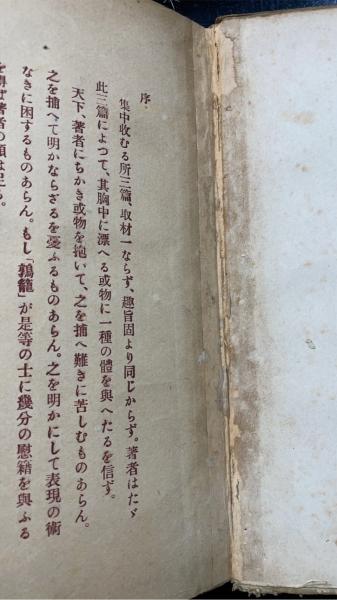 序
集中收むる所三篇、取材一ならず、趣旨固より同じからず。著者はたゞ
此三篇によつて、其胸中に漂へる或物に一種の體を與へたるを信ず。
天下、著者にちかき或物を抱いて、之を捕へ難きに苦しむものあらん。
之を捕へて明かならざるを憂ふるものあらん。之を明かにして表現の術
なきに困するものあらん。もし「鶉籠」が是等の士に幾分の慰藉を與ふる
を得ば著者の願は足る。